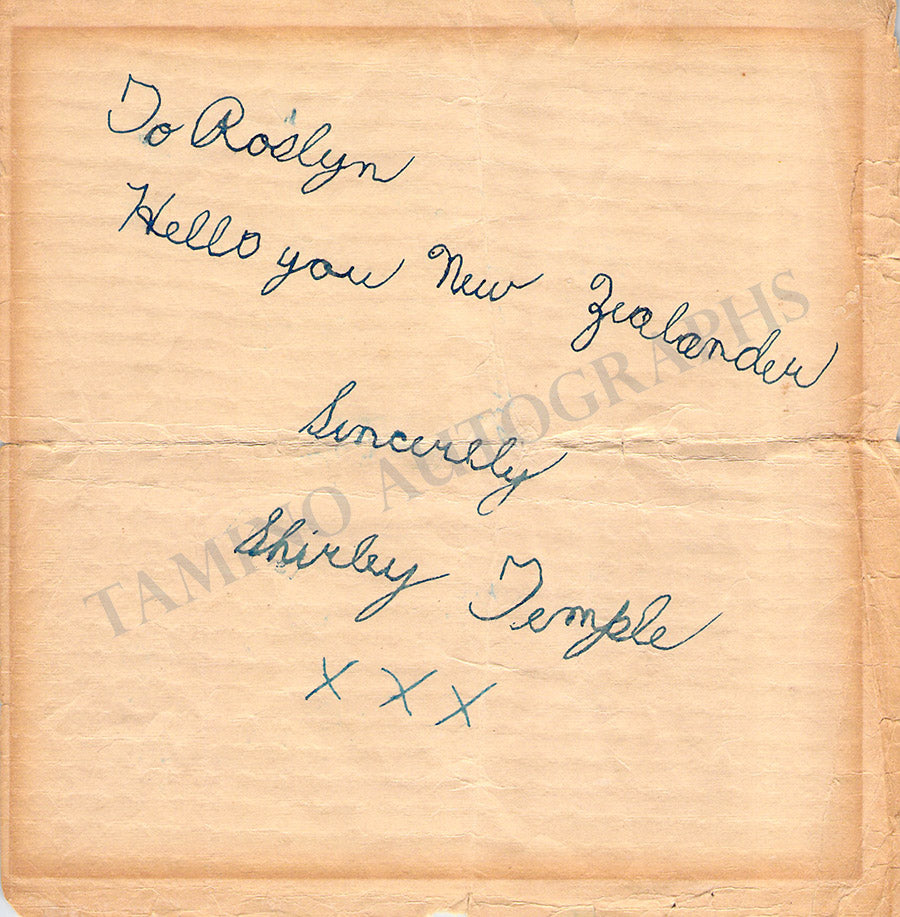 To Roslyn
Hello you New Zealander
Sincerely
Shirley Temple
X X X
TAMINO AUTOGRAPHS